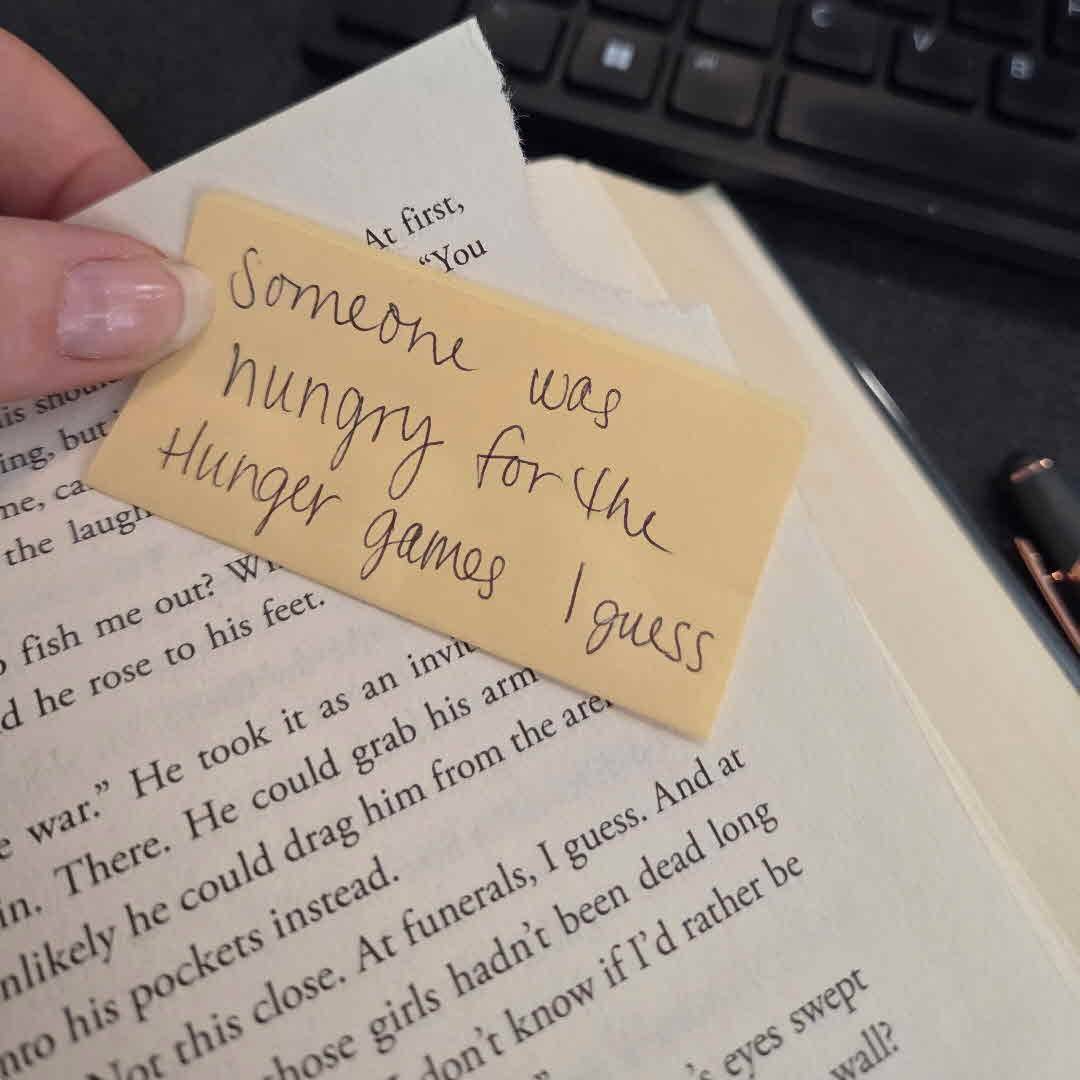 At first,
“You
Someone was
hungry for the
Hunger games I guess
his
ing, but
me, ca
the laugh
fish me out? W
d he rose to his feet.
e war.” He took it as an invi
in. There. He could grab his arm
nlikely he could drag him from the are
nto his pockets instead.
Not this close. At funerals, I guess. And at
hose girls hadn’t been dead long
don’t know if I’d rather be
’s eyes swept
wall?
C V B